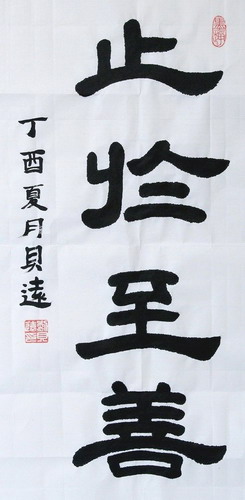 止於至善
丁酉夏月貝遠